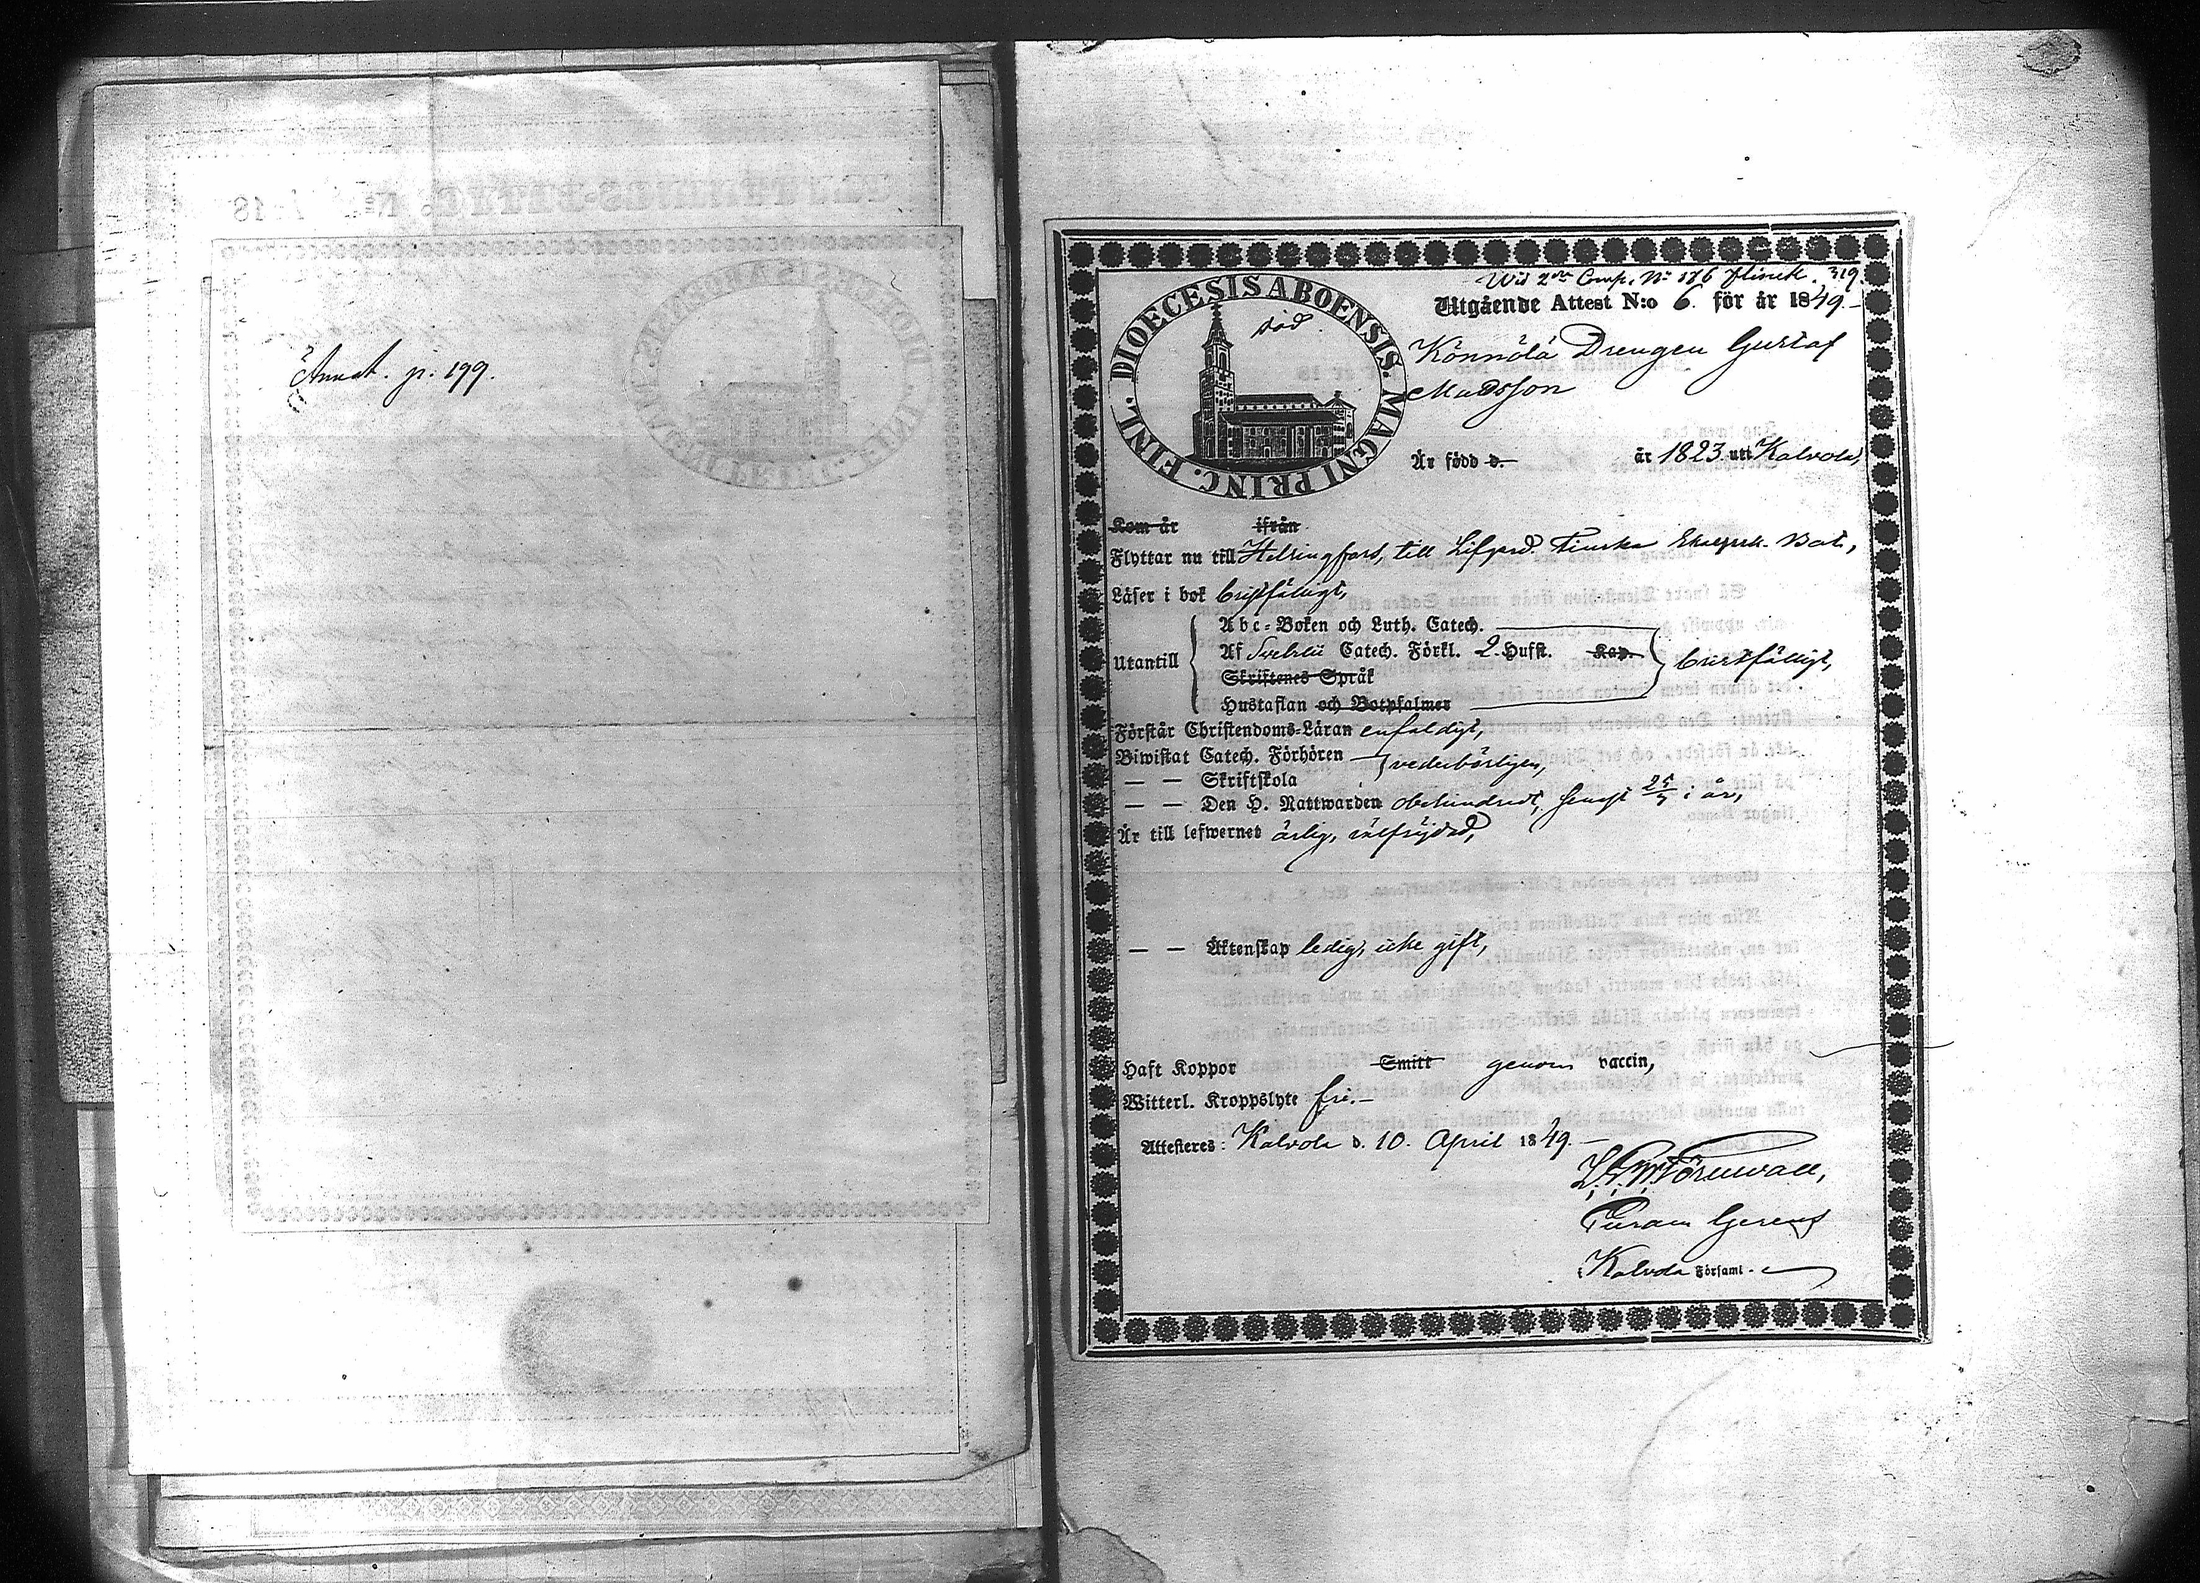 Annot. p. 199.
Wid 2dra Comp. No 176 Flinck. 319.
DIOECESIS ABOENSIS. MAGNI PRINC. FINL.
död.
Utgående Attest N:o 6. för år 1849.–
Könnölä Drengen Gustaf
Madsson
Är född d. år 1823 uti Kalvola,
Kom år ifrån
Flyttar nu till Helsingfors, till Lifgard. Finska Skarpsk. Bat,
Läser i bok bristfälligt,
Abc-Boken och Luth. Catech.
Utantill Af Svebilii Catech. Förkl. 2. Hufst. Kap. bristfälligt,
Skriftenes Språk
Hustaflan och Botpsalmer
Förstår Christendoms-Läran enfaldigt,
Biwistat Catech. Förhören vederbörligen,
— — Skriftskola
— — Den H. Nattwarden obehindradt, senast 25/3 i år,
Är till lefwernet ärlig, välfrejdad,
— — Äktenskap ledig, icke gift,
Haft Koppor Smitt genom vaccin,
Witterl. Kroppslyte fri.–
Attesteres: Kalvola d. 10. April 1849.–
Törnwall,
Kalvola Församl.